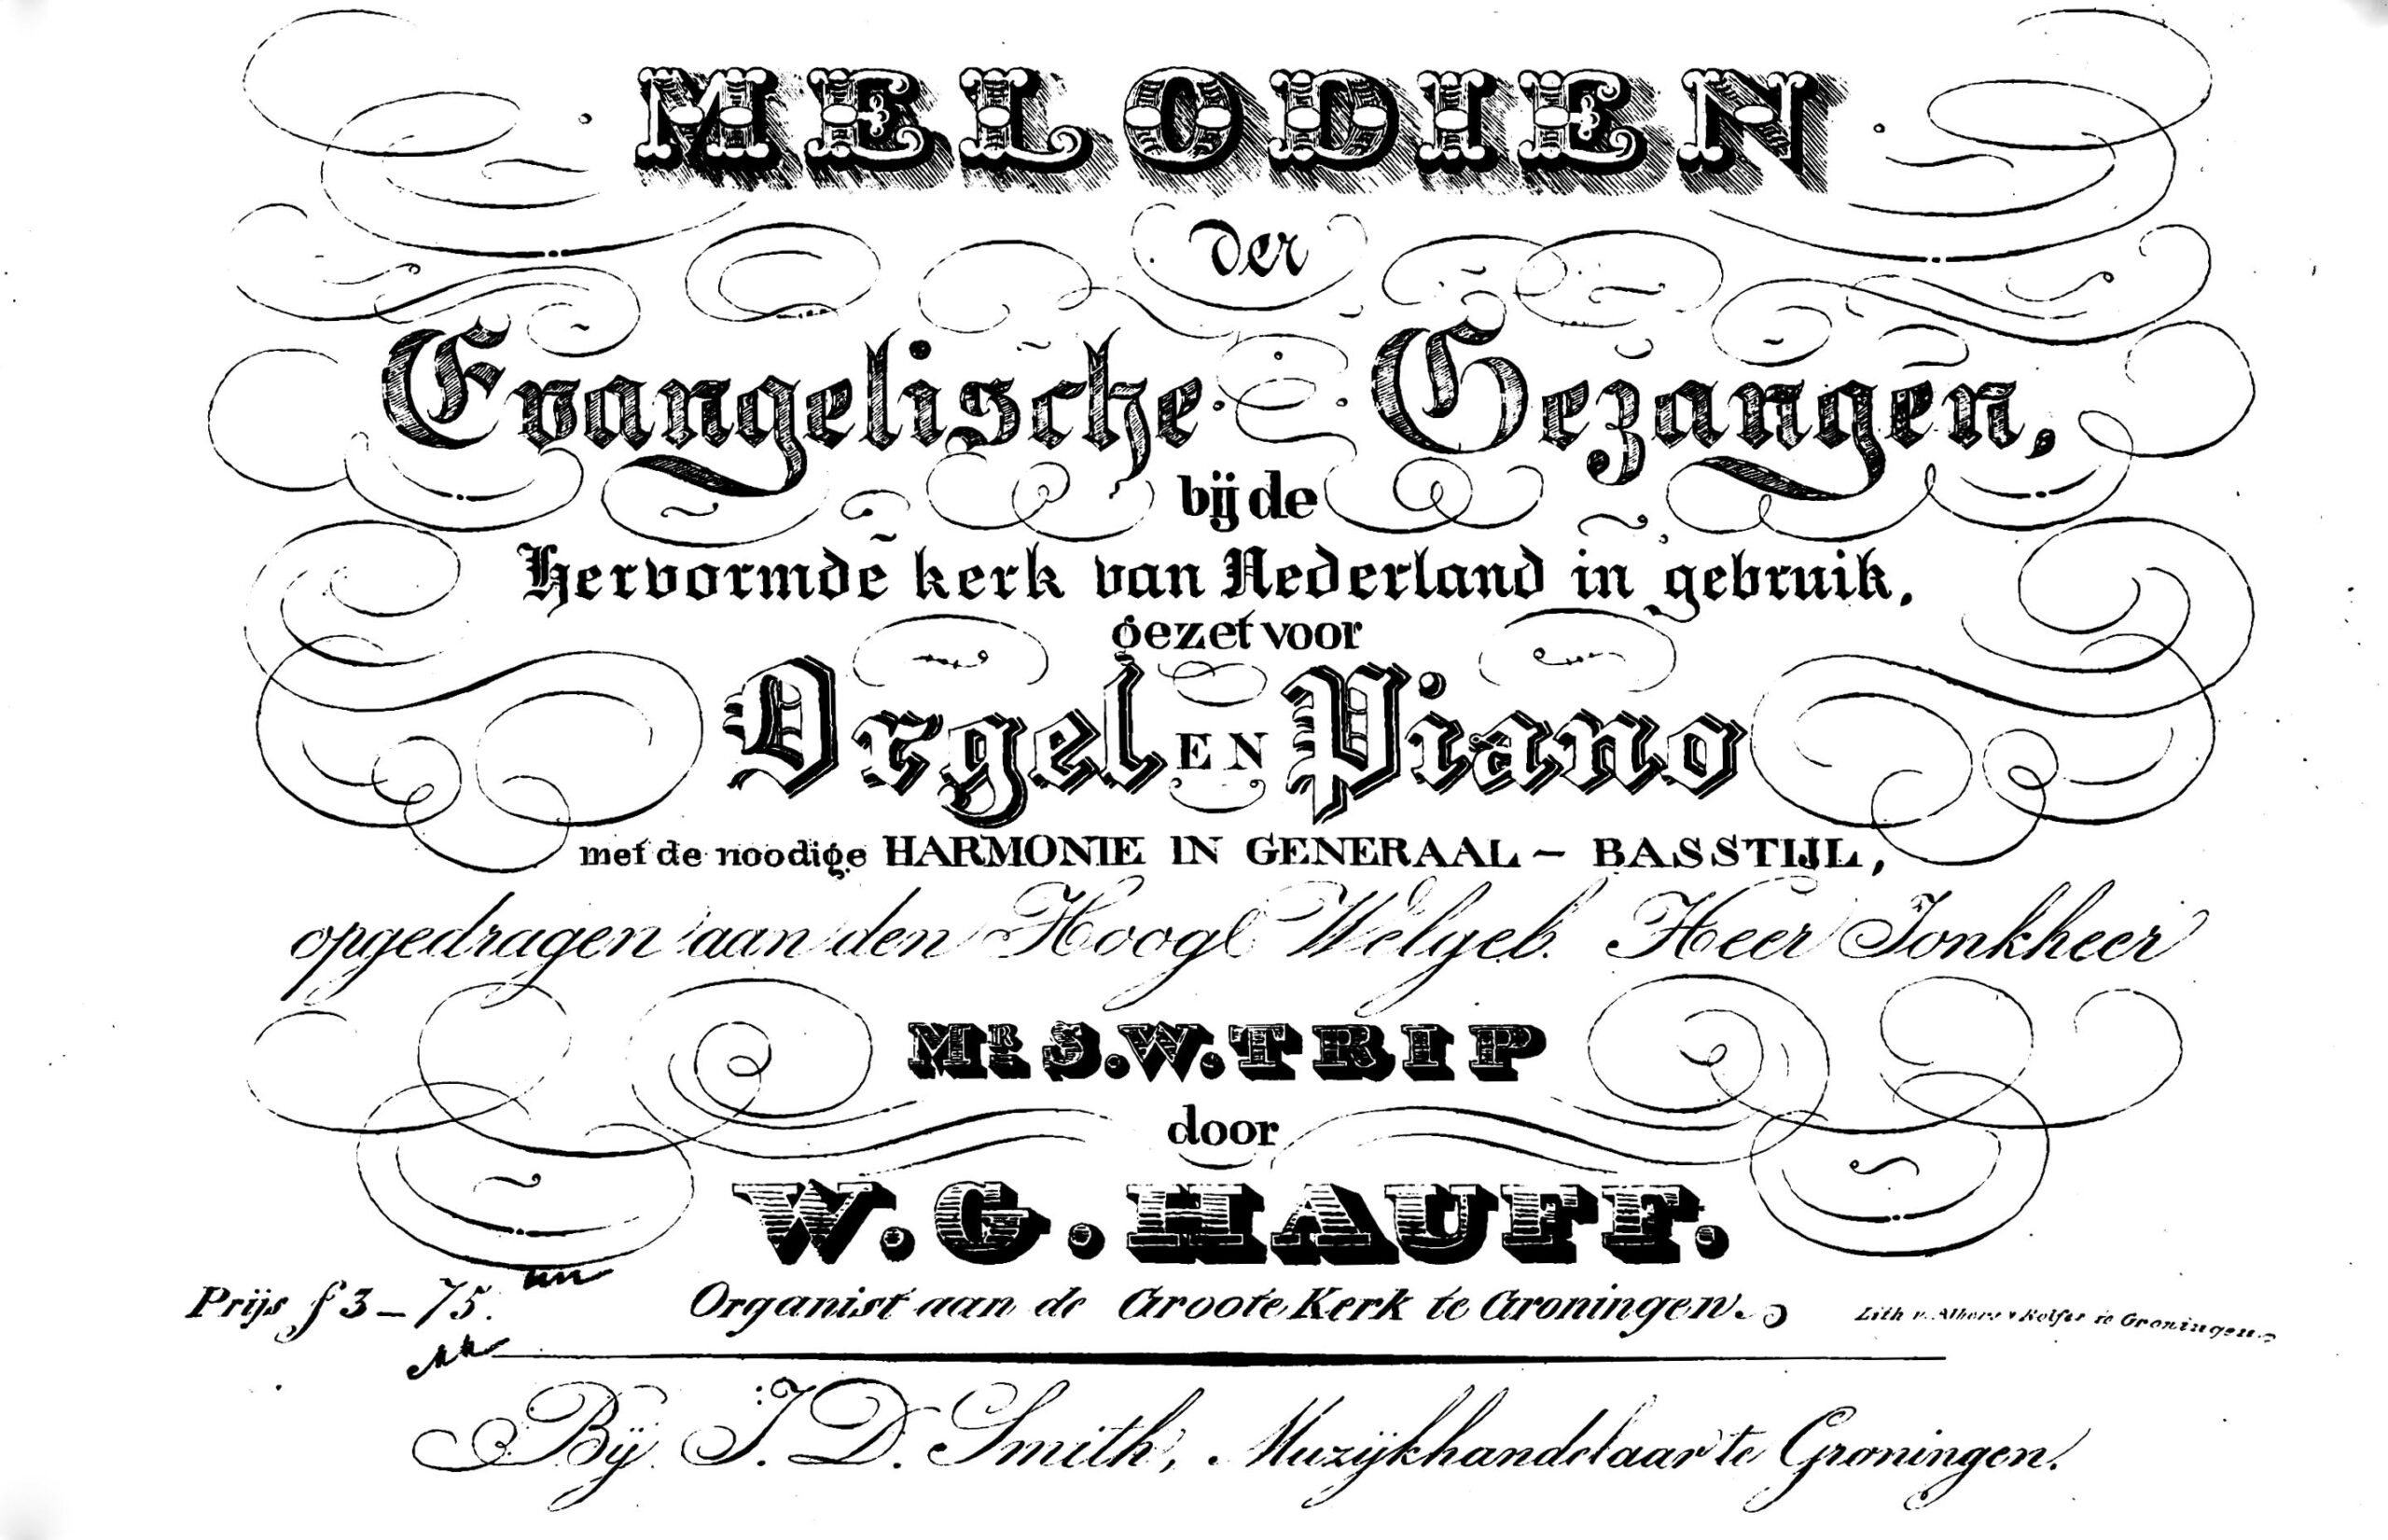 MELODIEN
der
Evangelische Gezangen,
bij de
Hervormde kerk van Nederland in gebruik,
gezet voor
Orgel EN Piano
met de noodige HARMONIE IN GENERAAL - BASSTIJL,
opgedragen aan den Hoogl Welgeb. Heer Jonkheer
MR S.W. TRIP
door
W. G. HAUFF.
Prijs f 3 - 75.
Organist aan de Groote Kerk te Groningen.
Lith v. te Groningen.
Bij J. D. Smith, Muzijkhandelaar te Groningen.